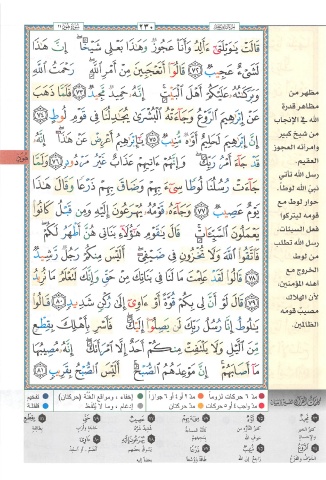 ٢٣٠
قَالَتْ يَٰوَيْلَتَىٰٓ ءَأَلِدُ وَأَنَا۠ عَجُوزٌ وَهَٰذَا بَعْلِى شَيْخًا ۖ إِنَّ هَٰذَا
لَشَىْءٌ عَجِيبٌ ٧٢ قَالُوٓا۟ أَتَعْجَبِينَ مِنْ أَمْرِ ٱللَّهِ ۖ رَحْمَتُ ٱللَّهِ
وَبَرَكَٰتُهُۥ عَلَيْكُمْ أَهْلَ ٱلْبَيْتِ ۚ إِنَّهُۥ حَمِيدٌ مَّجِيدٌ ٧٣ فَلَمَّا ذَهَبَ
عَنْ إِبْرَٰهِيمَ ٱلرَّوْعُ وَجَآءَتْهُ ٱلْبُشْرَىٰ يُجَٰدِلُنَا فِى قَوْمِ لُوطٍ ٧٤
إِنَّ إِبْرَٰهِيمَ لَحَلِيمٌ أَوَّٰهٌ مُّنِيبٌ ٧٥ يَٰٓإِبْرَٰهِيمُ أَعْرِضْ عَنْ هَٰذَآ ۖ إِنَّهُۥ
قَدْ جَآءَ أَمْرُ رَبِّكَ ۖ وَإِنَّهُمْ ءَاتِيهِمْ عَذَابٌ غَيْرُ مَرْدُودٍ ٧٦ وَلَمَّا
جَآءَتْ رُسُلُنَا لُوطًا سِىٓءَ بِهِمْ وَضَاقَ بِهِمْ ذَرْعًا وَقَالَ هَٰذَا
يَوْمٌ عَصِيبٌ ٧٧ وَجَآءَهُۥ قَوْمُهُۥ يُهْرَعُونَ إِلَيْهِ وَمِن قَبْلُ كَانُوا۟
يَعْمَلُونَ ٱلسَّيِّـَٔاتِ ۚ قَالَ يَٰقَوْمِ هَٰٓؤُلَآءِ بَنَاتِى هُنَّ أَطْهَرُ لَكُمْ ۖ
فَٱتَّقُوا۟ ٱللَّهَ وَلَا تُخْزُونِ فِى ضَيْفِىٓ ۖ أَلَيْسَ مِنكُمْ رَجُلٌ رَّشِيدٌ
٧٨ قَالُوا۟ لَقَدْ عَلِمْتَ مَا لَنَا فِى بَنَاتِكَ مِنْ حَقٍّ وَإِنَّكَ لَتَعْلَمُ مَا نُرِيدُ
٧٩ قَالَ لَوْ أَنَّ لِى بِكُمْ قُوَّةً أَوْ ءَاوِىٓ إِلَىٰ رُكْنٍ شَدِيدٍ ٨٠ قَالُوا۟
يَٰلُوطُ إِنَّا رُسُلُ رَبِّكَ لَن يَصِلُوٓا۟ إِلَيْكَ ۖ فَأَسْرِ بِأَهْلِكَ بِقِطْعٍ
مِّنَ ٱلَّيْلِ وَلَا يَلْتَفِتْ مِنكُمْ أَحَدٌ إِلَّا ٱمْرَأَتَكَ ۖ إِنَّهُۥ مُصِيبُهَا
مَآ أَصَابَهُمْ ۚ إِنَّ مَوْعِدَهُمُ ٱلصُّبْحُ ۚ أَلَيْسَ ٱلصُّبْحُ بِقَرِيبٍ ٨١
مظهر من
مظاهر قدرة
الله في الإنجاب
من شيخ كبير
وامرأته العجوز
العقيم.
رسل الله تأتي
نبيّ الله لوطاً.
حوار لوط مع
قومه ليتركوا
فعل السيئات.
رسل الله تطلب
الخروج مع
أهله المؤمنين،
لأن الهلاك
مصيبٌ قومه
الظالمين.
مدّ ٦ حركات لزوماً
مدّ ٢ أو ٤ أو ٦ جوازاً
إخفاء، ومواقع الغُنَّة (حركتان)
تفخيم
مدّ واجب ٤ أو ٥ حركات
مدّ حركتان
إدغام، وما لا يُلفَظ
قلقلة